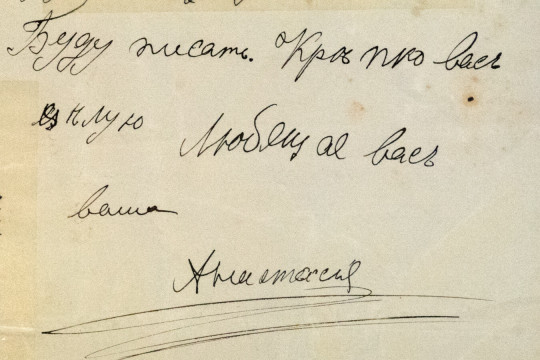 Буду писать. Крѣпко васъ
цѣлую Любящая васъ
ваша
Анастасія